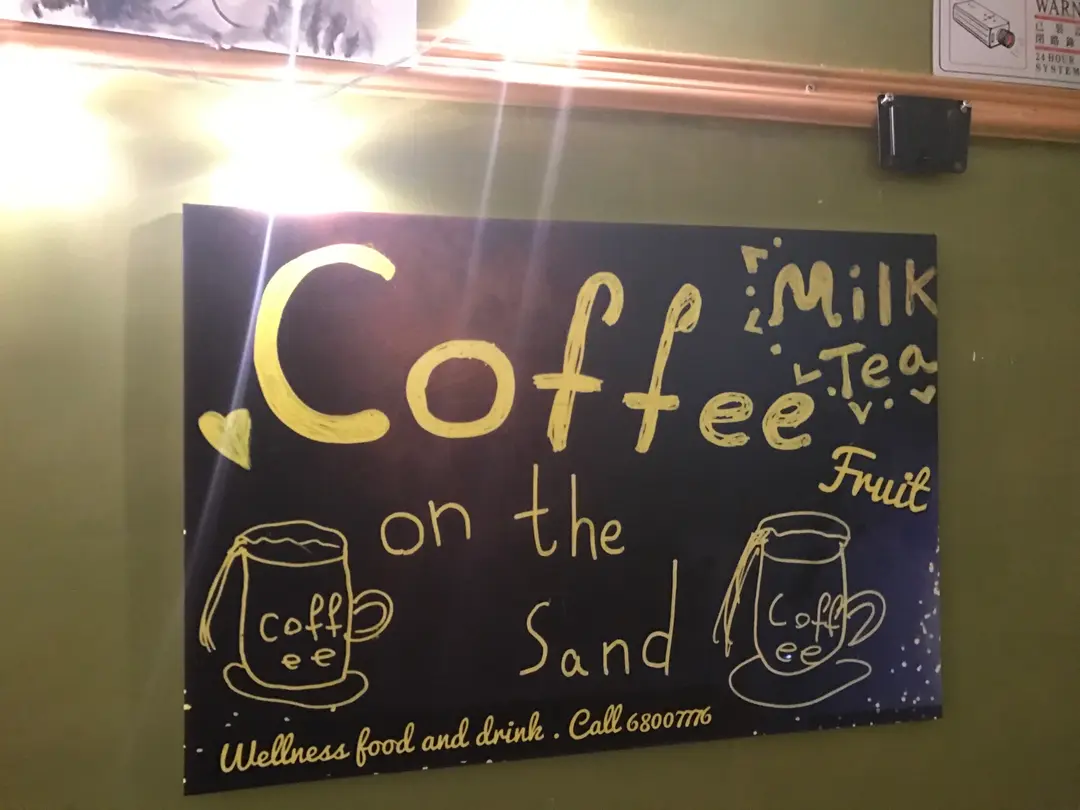 WARN
24 HOUR
SYSTEM
Coffee
Milk
Tea
Fruit
on the
Sand
coff
ee
Coff
ee
Wellness food and drink . Call 68007776